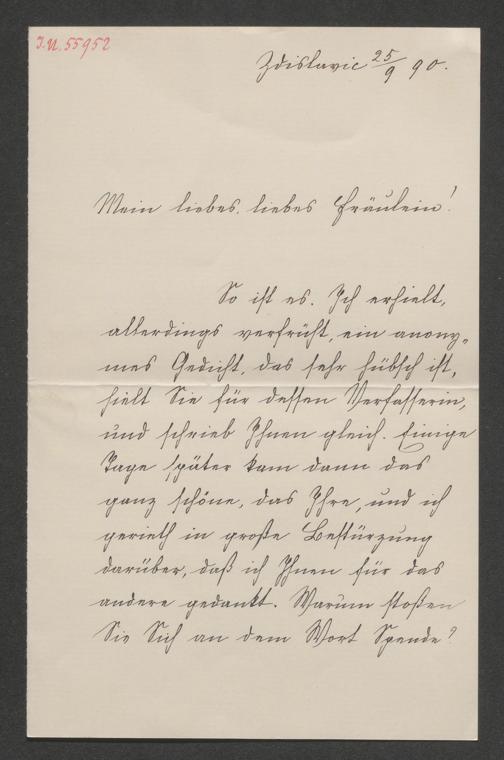 J.N. 55952
Zdislavic 25/9 90.
Mein liebes, liebes Fräulein!
So ist es. Ich erhielt,
allerdings verfrüht, ein anony-
mes Gedicht, das sehr hübsch ist,
hielt Sie für dessen Verfasserin,
und schrieb Ihnen gleich. Einige
Tage später kam dann das
ganz schöne, das Ihre, und ich
gerieth in große Bestürzung
darüber, daß ich Ihnen für das
andere gedankt. Warum stoßen
Sie Sich an dem Wort Spende?